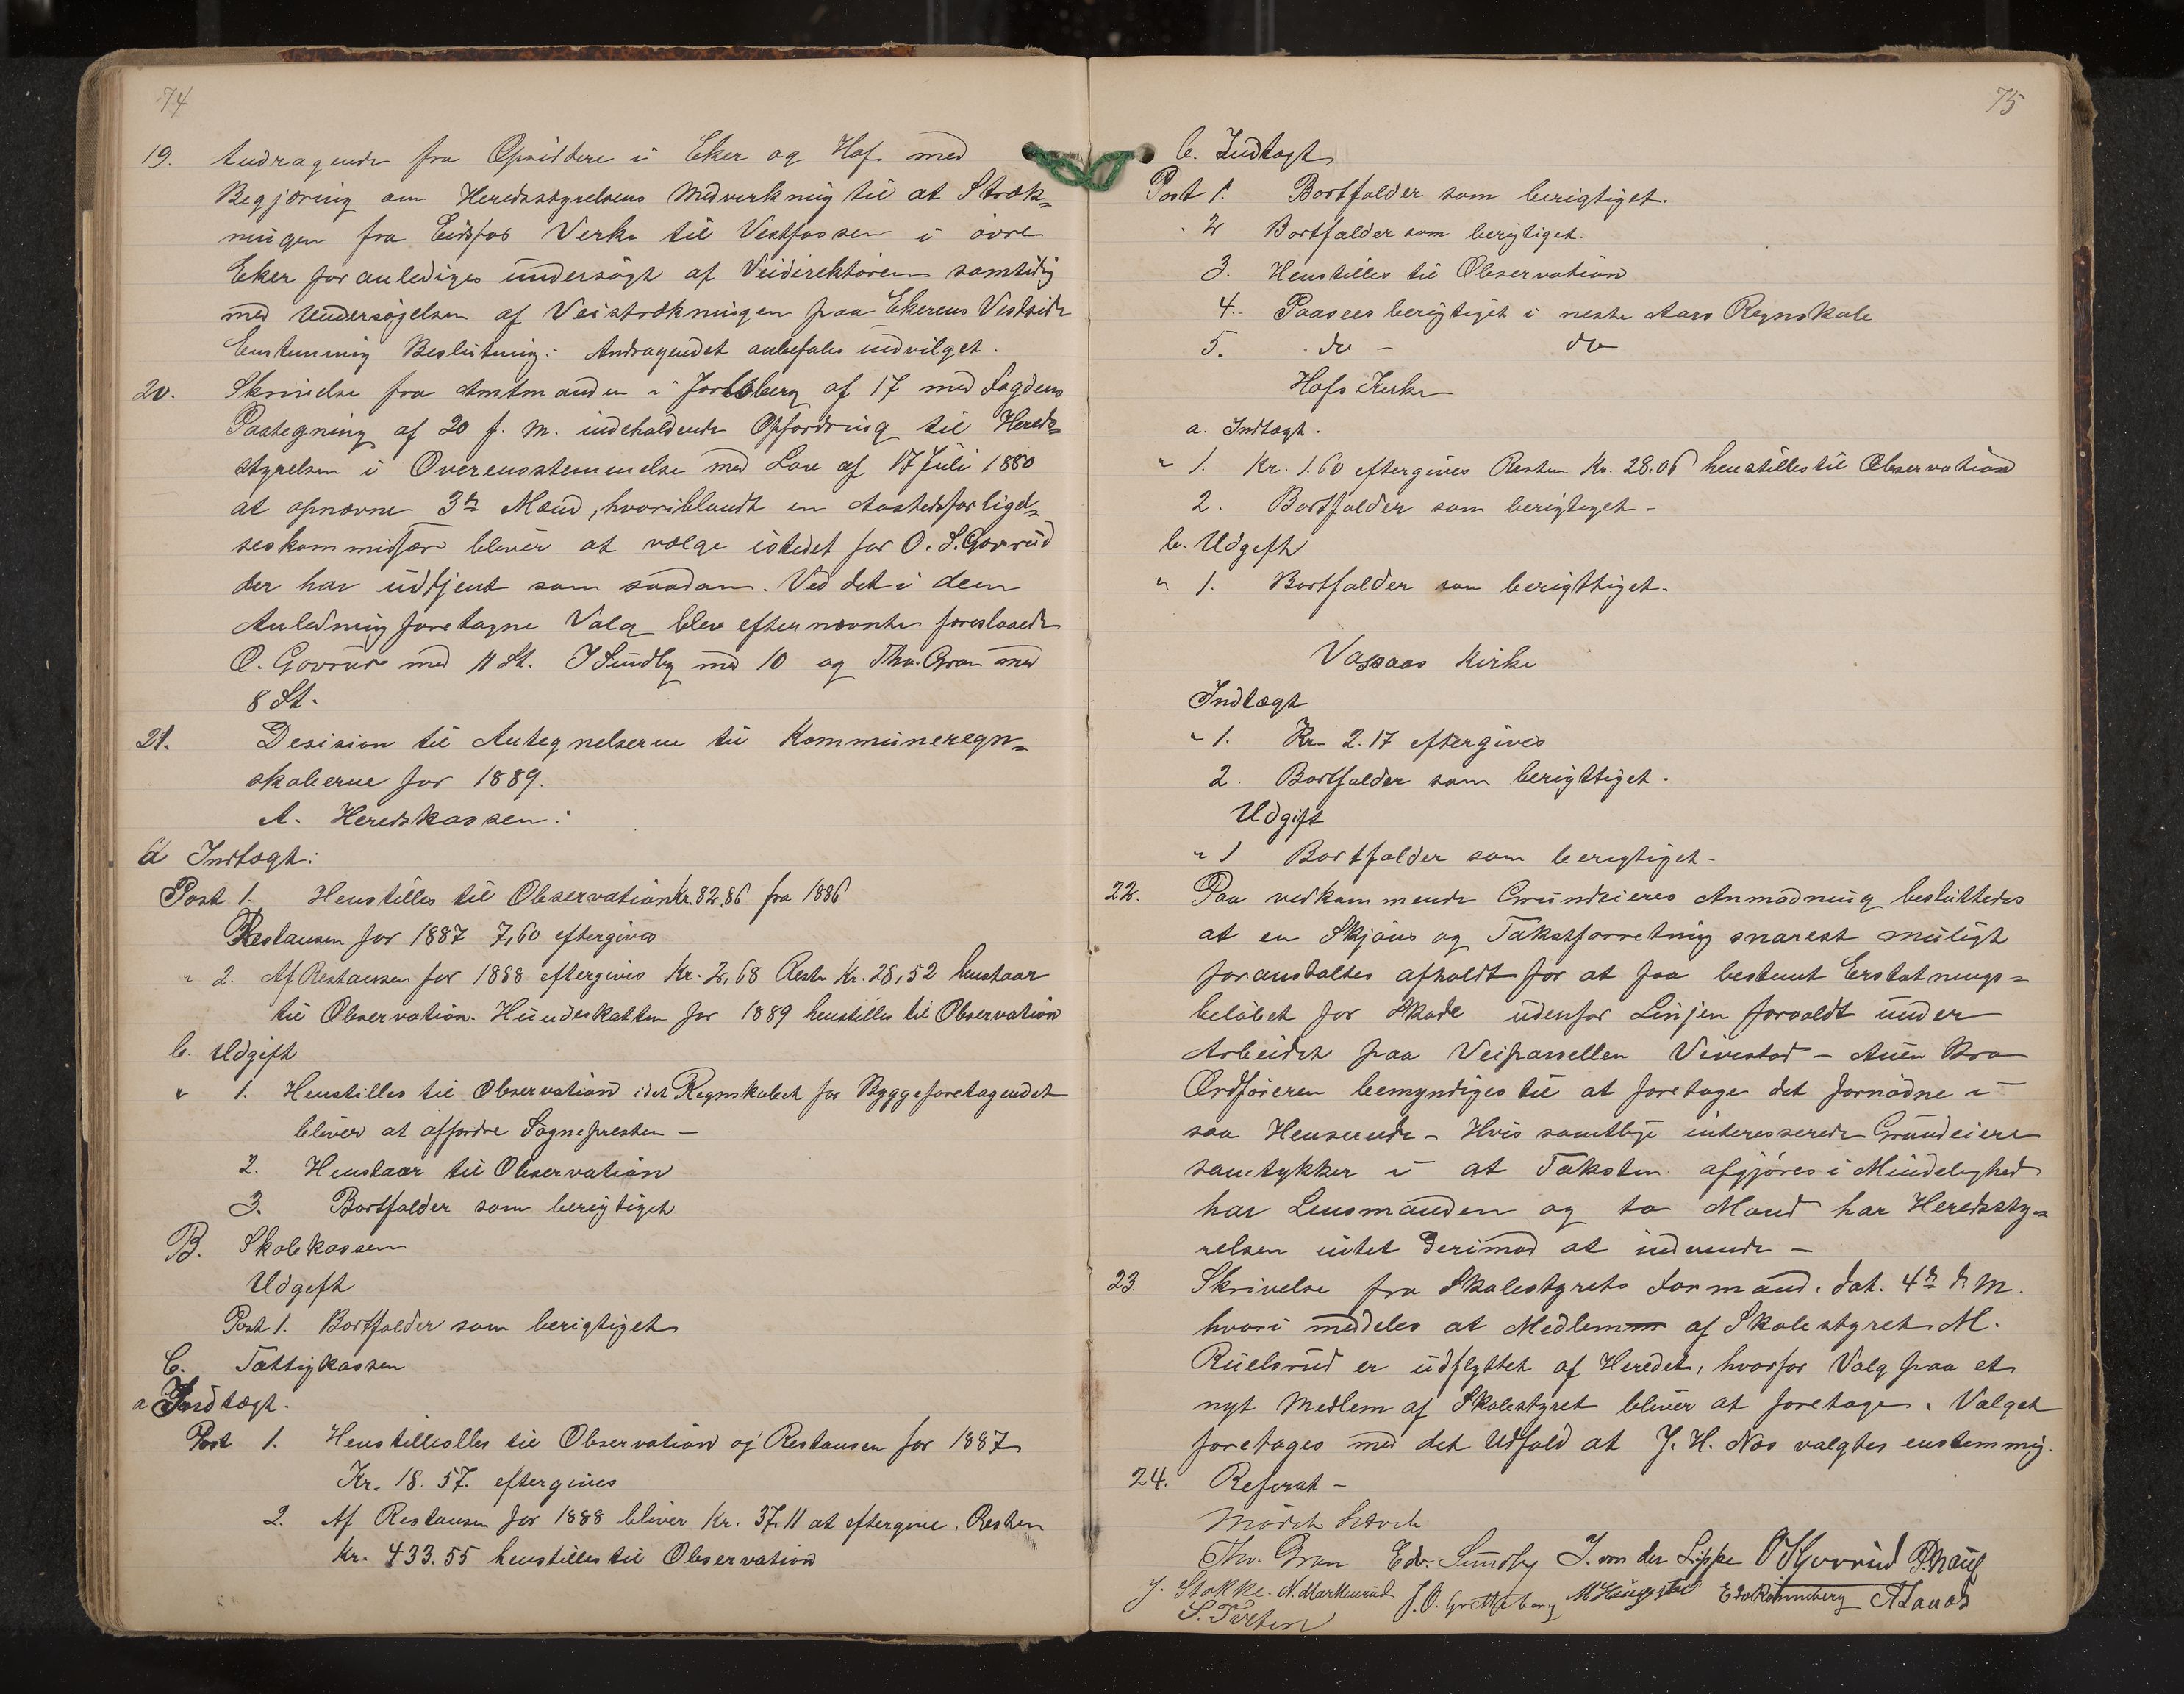 74
19. Andragende fra Opsiddere i Eker og Hof med
Begjæring om Heredsstyrelsens Medverkning til at Stræk=
ningen fra Eidsfos Verk til Vestfossen i øvre
Eker foranlediges undersøgt af Veidirektøren samtidig
med Undersøgelsen af Veistrækningen paa Ekerens Vestside
Enstemmig Beslutning: Andragendet anbefales indvilget.
20. Skrivelse fra Amtmanden i Jarlsberg af 17 med Fogdens
Paategning af 20 f. M. indeholdende Opfordring til Hereds=
styrelsen i Overensstemmelse med Lov af 17 Juli 1880
at opnævne 3de Mænd, hvoriblandt en Aastedsforligel=
seskommissær bliver at vælge istedet for O. S. Gavrud
der har udtjent som saadan. Ved det i den
Anledning foretagne Valg blev efternævnte foreslaaede
O. Gavrud med 11 St. I Sundby med 10 og Thv. Gran med
8 St.
21. Desision til Antegnelserne til Kommuneregn=
skaberne for 1889.
A. Heredskassen:
a Indtægt:
Post 1. Henstilles til Observation Kr. 82,86 fra 1886
Restausen for 1887 7,60 eftergives
" 2. Af Restausen for 1888 eftergives Kr. 2,68 Resten Kr. 28,52 henstaar
til Observation. Hundeskatten for 1889 henstilles til Observation
b. Udgift
" 1. Henstilles til Observation idet Regnskabet for Byggeforetagendet
bliver at affordre Sognepresten –
2. Henstaar til Observation
3. Bortfalder som berigtiget
B. Skolekassen
Udgift
Post 1. Bortfalder som berigtiget
C. Fattigkassen
a Indtægt.
Post 1. Henstilles til Observation og Restausen for 1887
Kr. 18.57. eftergives
2. Af Restausen for 1888 bliver Kr. 37.11 at eftergive. Resten
Kr. 433.55 henstilles til Observation
75
b. Indtægt
Post 1. Bortfalder som berigtiget.
" 2 Bortfalder som berigtiget.
3. Henstilles til Observation
4. Paasees berigtiget i neste Aars Regnskab
5. do – do
Hofs Kirke
a. Indtægt.
" 1. Kr. 1.60 eftergives Resten Kr. 28.06 henstilles til Observation
2. Bortfalder som berigtiget –
b. Udgift
" 1. Bortfalder som berigttiget.
Vassaas Kirke
Indtægt
" 1. Kr. 2.17 eftergives
2. Bortfalder som berigttiget.
Udgift
" 1 Bortfalder som berigtiget –
22. Paa vedkommende Grundeieres Anmodning besluttedes
at en Skjøns og Takstforretning snarest muligt
foranstaltes afholdt for at faa bestemt Erstatnings=
beløbet for Skade udenfor Linjen forvoldt under
Arbeidet paa Veiparsellen Vivestad – Auen Bro
Ordføreren bemyndiges til at foretage det fornødne i
saa Henseende – Hvis samtlige interesserede Grundeiere
samtykker i at Taksten afgjøres i Mindelighed
har Lensmanden og to Mænd har Heredssty=
relsen intet derimod at indvende –
23. Skrivelse fra Skolestyrets Formand. dat. 4de d. M.
hvori meddeles at Medlem af Skolestyret M.
Ruelsrud er udflyttet af Heredet, hvorfor Valg paa et
nyt Medlem af Skolestyret bliver at foretage. Valget
foretages med det Udfald at J. H. Nos valgtes enstemmig.
24. Referat –
Mörch
Thv. Gran Edv. Sundby J. von der Lippe O S Gavrud
J. Stokke. Edv Rønneberg
S. Tveten